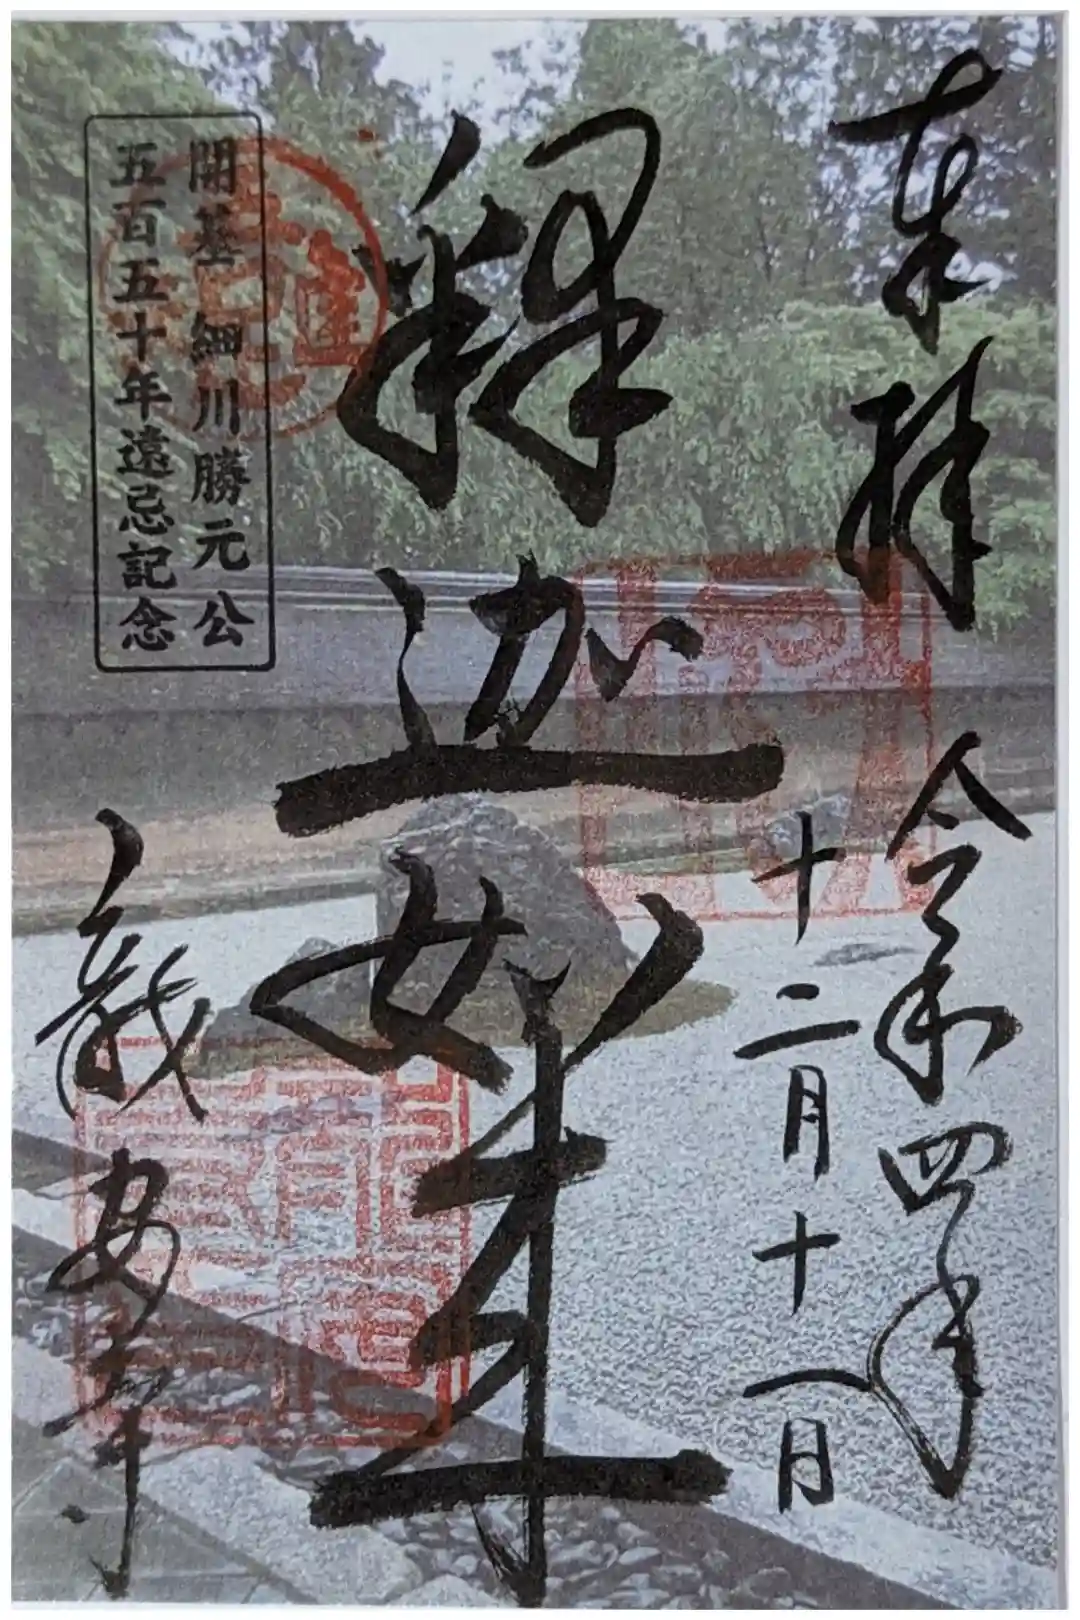 奉拝 令和四年
十二月十一日
釋迦如来
開基 細川勝元公
五百五十年遠忌記念
龍安寺